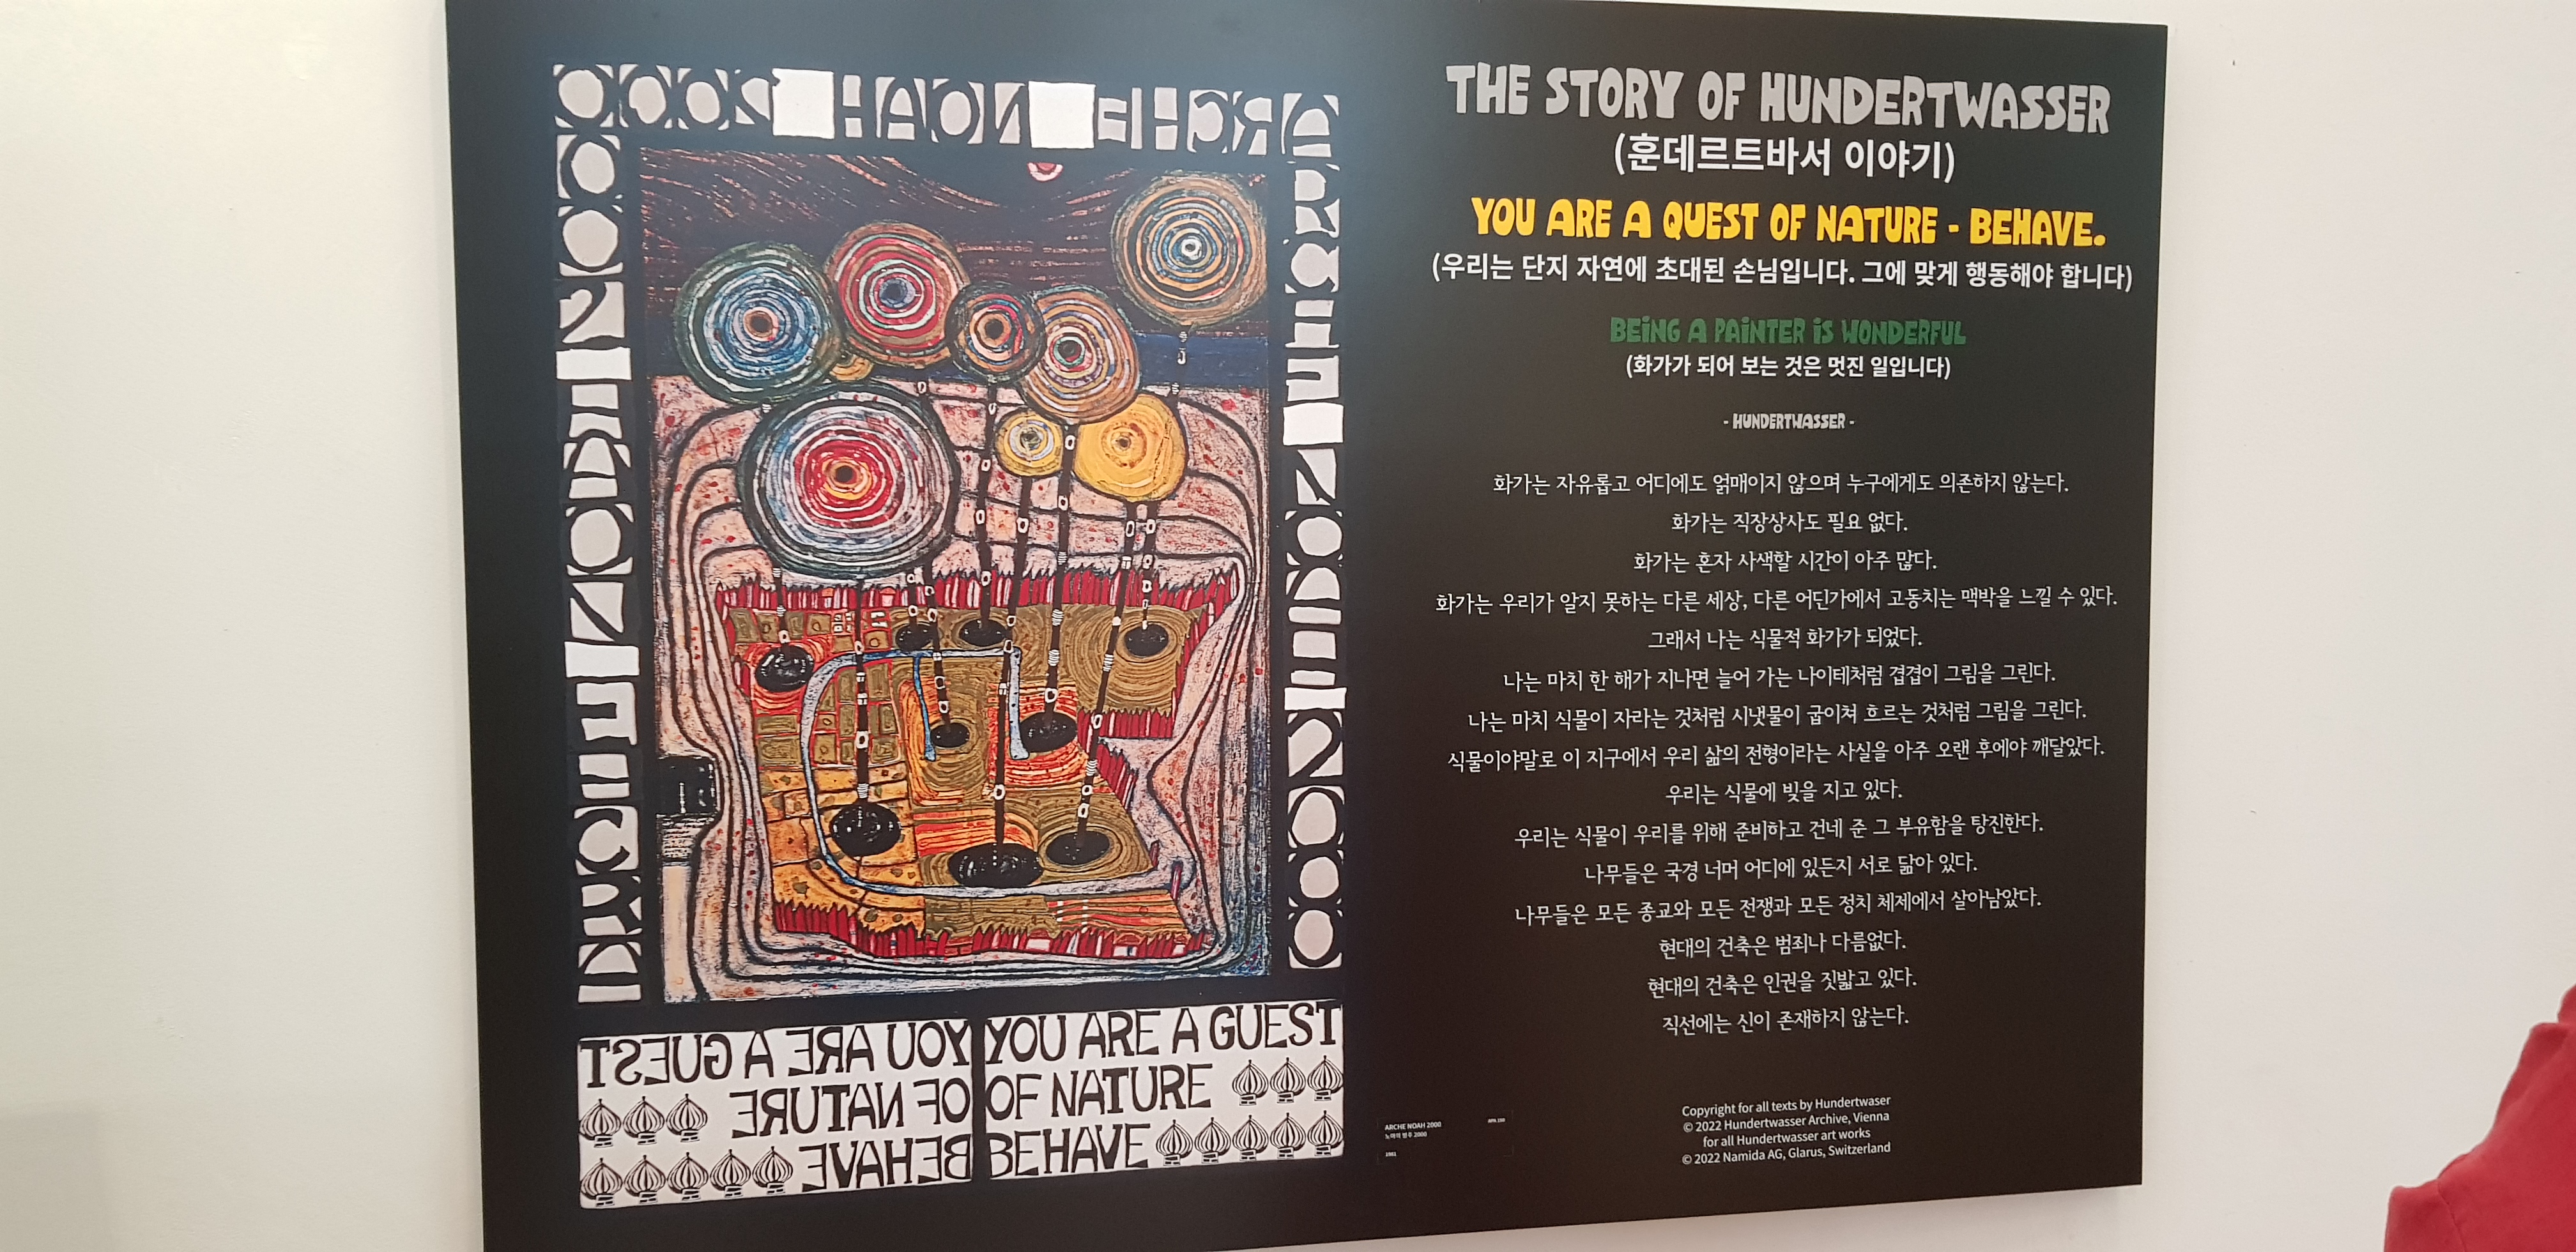 ARCHE NOAH 2000
THE STORY OF HUNDERTWASSER
(훈데르트바서 이야기)
YOU ARE A QUEST OF NATURE - BEHAVE.
(우리는 단지 자연에 초대된 손님입니다. 그에 맞게 행동해야 합니다)
BEiNG A PAiNTER iS WONDERFUL
(화가가 되어 보는 것은 멋진 일입니다)
- HUNDERTWASSER -
화가는 자유롭고 어디에도 얽매이지 않으며 누구에게도 의존하지 않는다.
화가는 직장상사도 필요 없다.
화가는 혼자 사색할 시간이 아주 많다.
화가는 우리가 알지 못하는 다른 세상, 다른 어딘가에서 고동치는 맥박을 느낄 수 있다.
그래서 나는 식물적 화가가 되었다.
나는 마치 한 해가 지나면 늘어 가는 나이테처럼 겹겹이 그림을 그린다.
나는 마치 식물이 자라는 것처럼 시냇물이 굽이쳐 흐르는 것처럼 그림을 그린다.
식물이야말로 이 지구에서 우리 삶의 전형이라는 사실을 아주 오랜 후에야 깨달았다.
우리는 식물에 빚을 지고 있다.
우리는 식물이 우리를 위해 준비하고 건네 준 그 부유함을 탕진한다.
나무들은 국경 너머 어디에 있든지 서로 닮아 있다.
나무들은 모든 종교와 모든 전쟁과 모든 정치 체제에서 살아남았다.
현대의 건축은 범죄나 다름없다.
현대의 건축은 인권을 짓밟고 있다.
직선에는 신이 존재하지 않는다.
Copyright for all texts by Hundertwaser
© 2022 Hundertwasser Archive, Vienna
for all Hundertwasser art works
© 2022 Namida AG, Glarus, Switzerland
YOU ARE A GUEST YOU ARE A GUEST
OF NATURE OF NATURE
BEHAVE BEHAVE
ARCHE NOAH 2000
노아의 방주 2000
1981